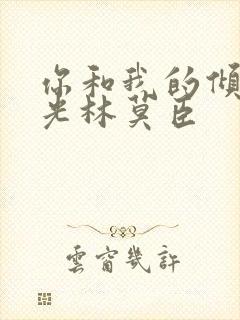 你和我的倾
光林莫臣
雲窗幾許